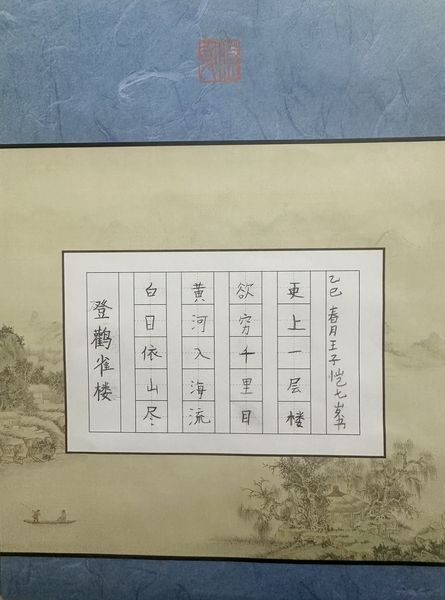 登鹳雀楼
白日依山尽
黄河入海流
欲穷千里目
更上一层楼
乙巳 春月王子恺七岁书